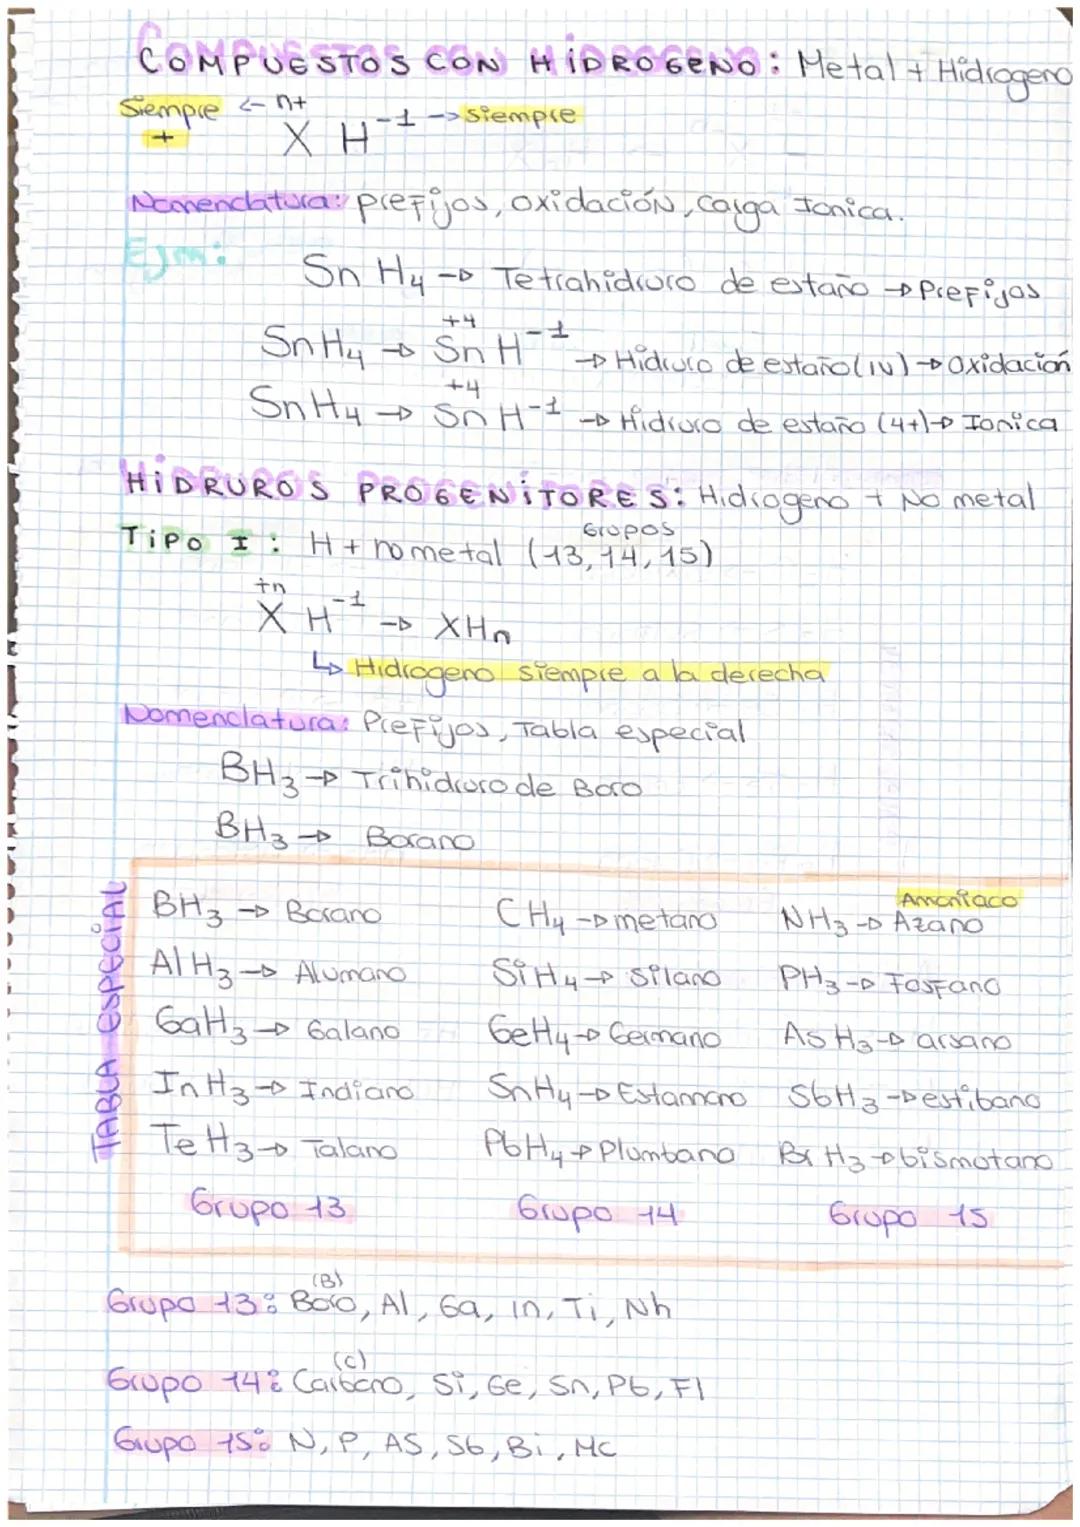 COMPUESTOS CON HiDROGENO: Metal + Hidrogeno
Siempre <- n+
+ X H-1 -> siempre
Nomenclatura: prefijos, oxidación, carga Ionica.
Ejm:
Sn H4 → Tetrahidruro de estaño → Prefijos
SnH4 → Sn+4 H-1 → Hidruro de estaño (IV) → Oxidación
SnH4 → Sn+4 H-1 → Hidruro de estaño (4+) → Ionica
HiDRUROS PROGENiTORES: Hidrogeno + No metal
TiPO I: H + no metal (13, 14, 15) Grupos
X+n H-1 → XHn
↳ Hidrogeno siempre a la derecha
Nomenclatura: Prefijos, Tabla especial
BH3 → Trihidruro de Boro
BH3 → Borano
TABLA ESPECIAL
BH3 → Borano CH4 → metano NH3 → Azano Amoniaco
AlH3 → Alumano SiH4 → Silano PH3 → Fosfano
GaH3 → Galano GeH4 → Germano AsH3 → arsano
InH3 → Indiano SnH4 → Estannano SbH3 → estibano
TeH3 → Talano PbH4 → Plumbano BiH3 → bismotano
Grupo 13 Grupo 14 Grupo 15
Grupo 13: Boro (B), Al, Ga, in, Ti, Nh
Grupo 14: Carbono (C), Si, Ge, Sn, Pb, Fl
Grupo 15: N, P, AS, Sb, Bi, Mc